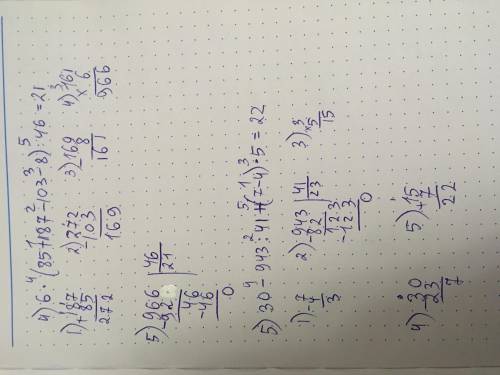 4) 6 · (85+187-103-8) : 46 = 21
1) +187 85 272
2) -272 103 169
3) -169 8 161
4) ×161 6 966
5) -966 | 46
92 | 21
46
-46
0
5) 30 - 943 : 41 + (7-4) · 5 = 22
1) -7 4 3
2) -943 | 41
82 | 23
123
-123
0
3) ×3 5 15
4) -30 23 7
5) +15 7 22